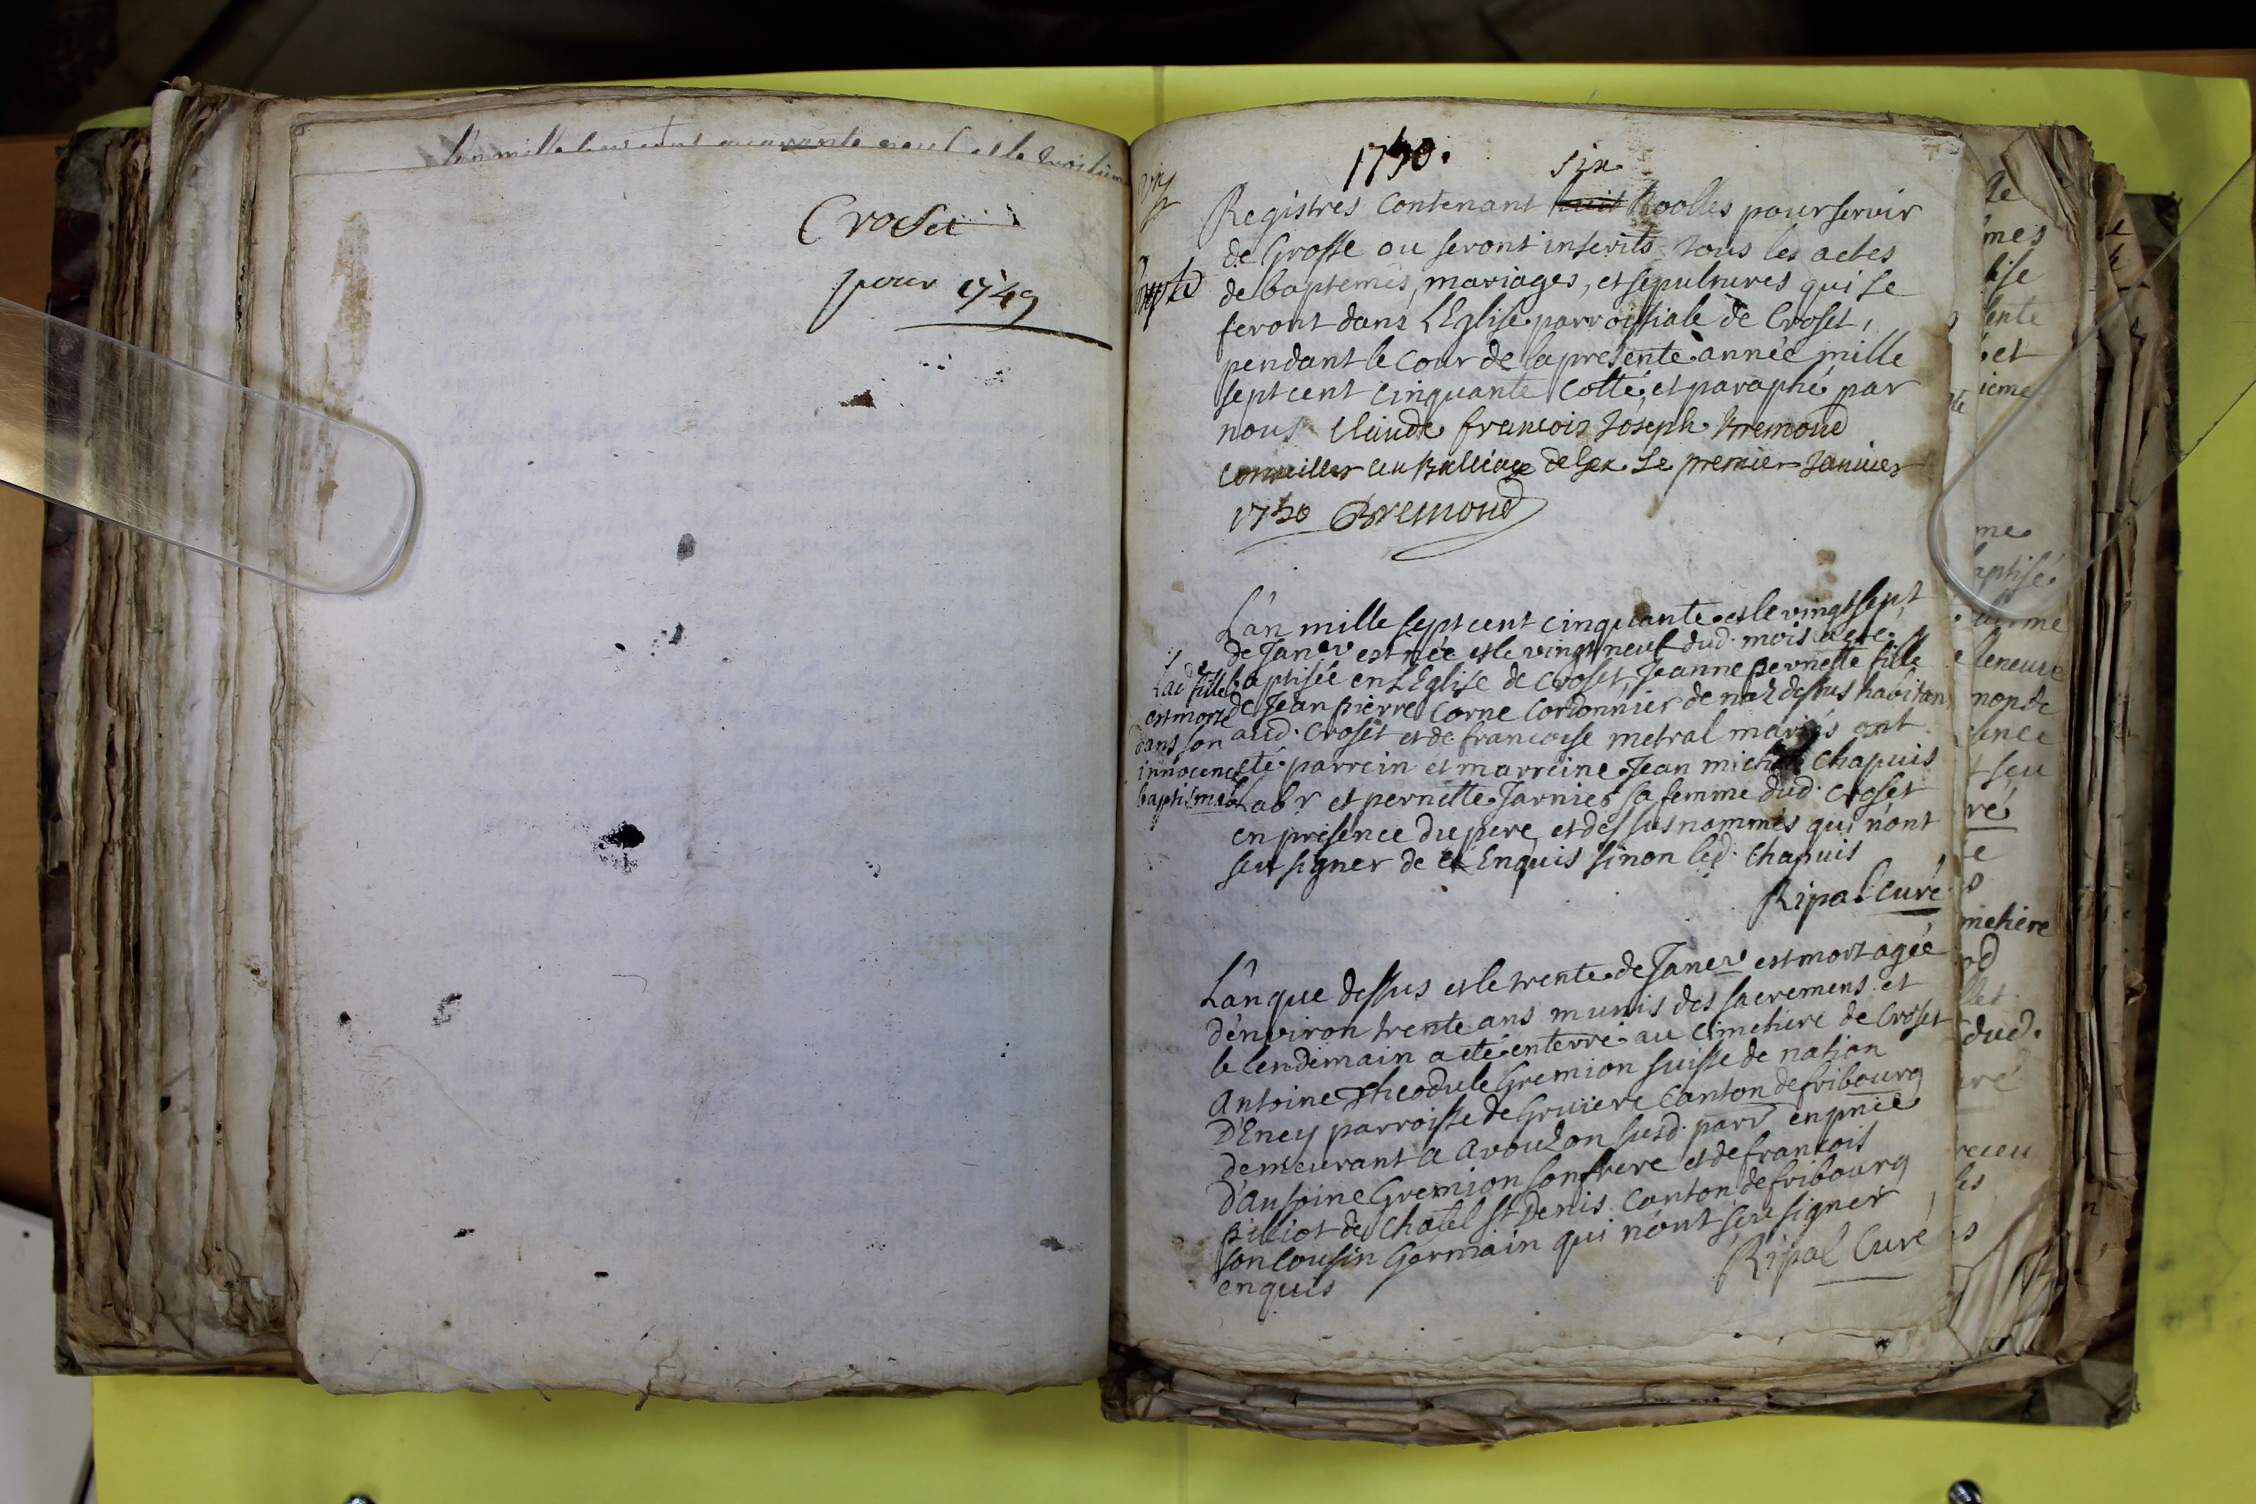 L'an mille sept cent quarante neuf et le troisiem
Croset
pour 1749
1750.
six
Registres Contenant huit Roolles pour servir
de Grosse ou seront inscrits tous les actes
de baptemes, mariages, et sepultures qui se
feront dans l'Eglise parroissiale de Croset,
pendant le Cour de la presente année mille
sept cent cinquante Cotté et paraphé par
nous Claude francois Joseph Bremond
Conseiller au Balliage de Gex le premier Januier
1750 Bremond
L'an mille sept cent cinquante et le vingt sept
de Janer est née et le vingt neuf dud. mois a eté
baptisée en l'Eglise de Croset, Jeanne pernette fille
de Jean pierre Corne Cordonnier de naz dessus habitant
aud. Croset et de francoise metral mariés ont
eté parrein et marreine Jean michel Chapuis
Labr et pernette Jarnier sa femme dud. Croset
en presence du pere et des susnommés qui n'ont
seu signer de ce Enquis sinon led. Chapuis
Ripal Curé
Lad fille
est morte
dans son
innocence
baptismale
L'an que dessus et le trente de Janer est mort agée
d'environ trente ans munis des sacremens et
le lendemain a eté enterré au Cimetiere de Croset
Antoine Theodule Gremion suisse de nation
D'Eney parroisse de Gruiere Canton de fribourg
demeurant a avouzon susd. parr en pnce
d'antoine Gremion son frere et de francois
pilliot de Chatel St Denis Canton de fribourg
son Cousin Germain qui n'ont seu signer
enquis
Ripal Curé